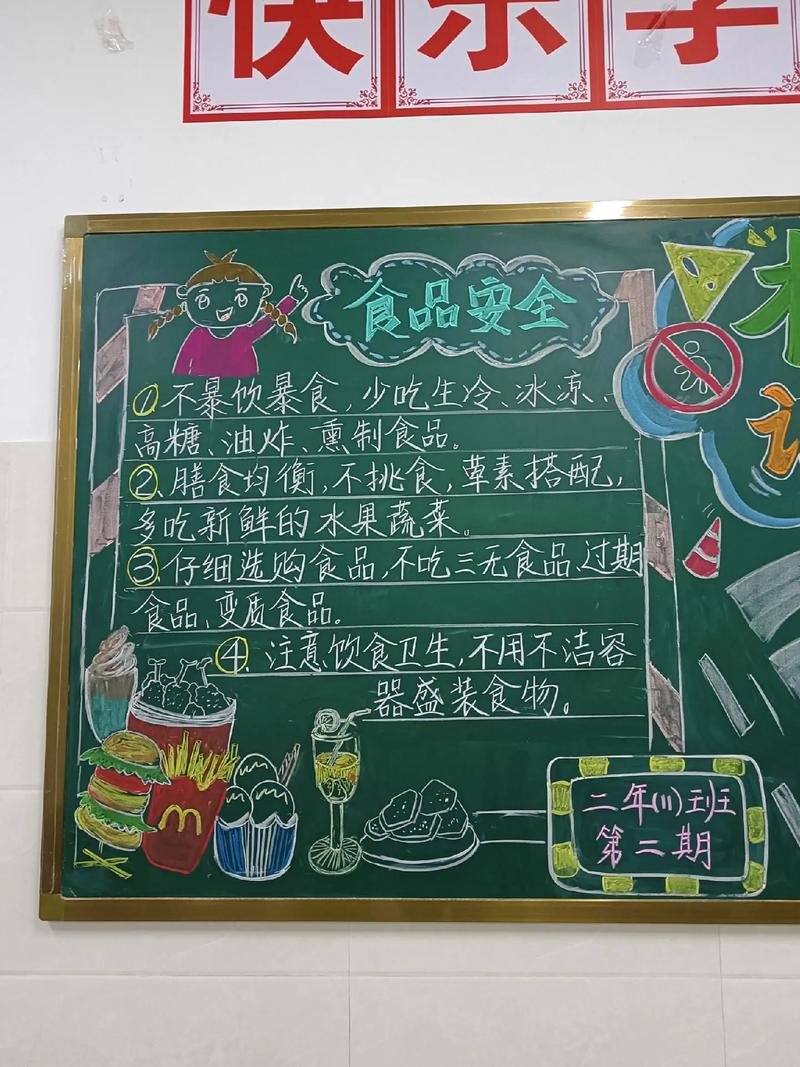 快乐学
食品安全
①不暴饮暴食,少吃生冷、冰凉、
高糖、油炸、熏制食品。
②、膳食均衡,不挑食,荤素搭配,
多吃新鲜的水果蔬菜。
③、仔细选购食品,不吃三无食品、过期
食品、变质食品。
④、注意饮食卫生,不用不洁容
器盛装食物。
二年(11)班
第二期